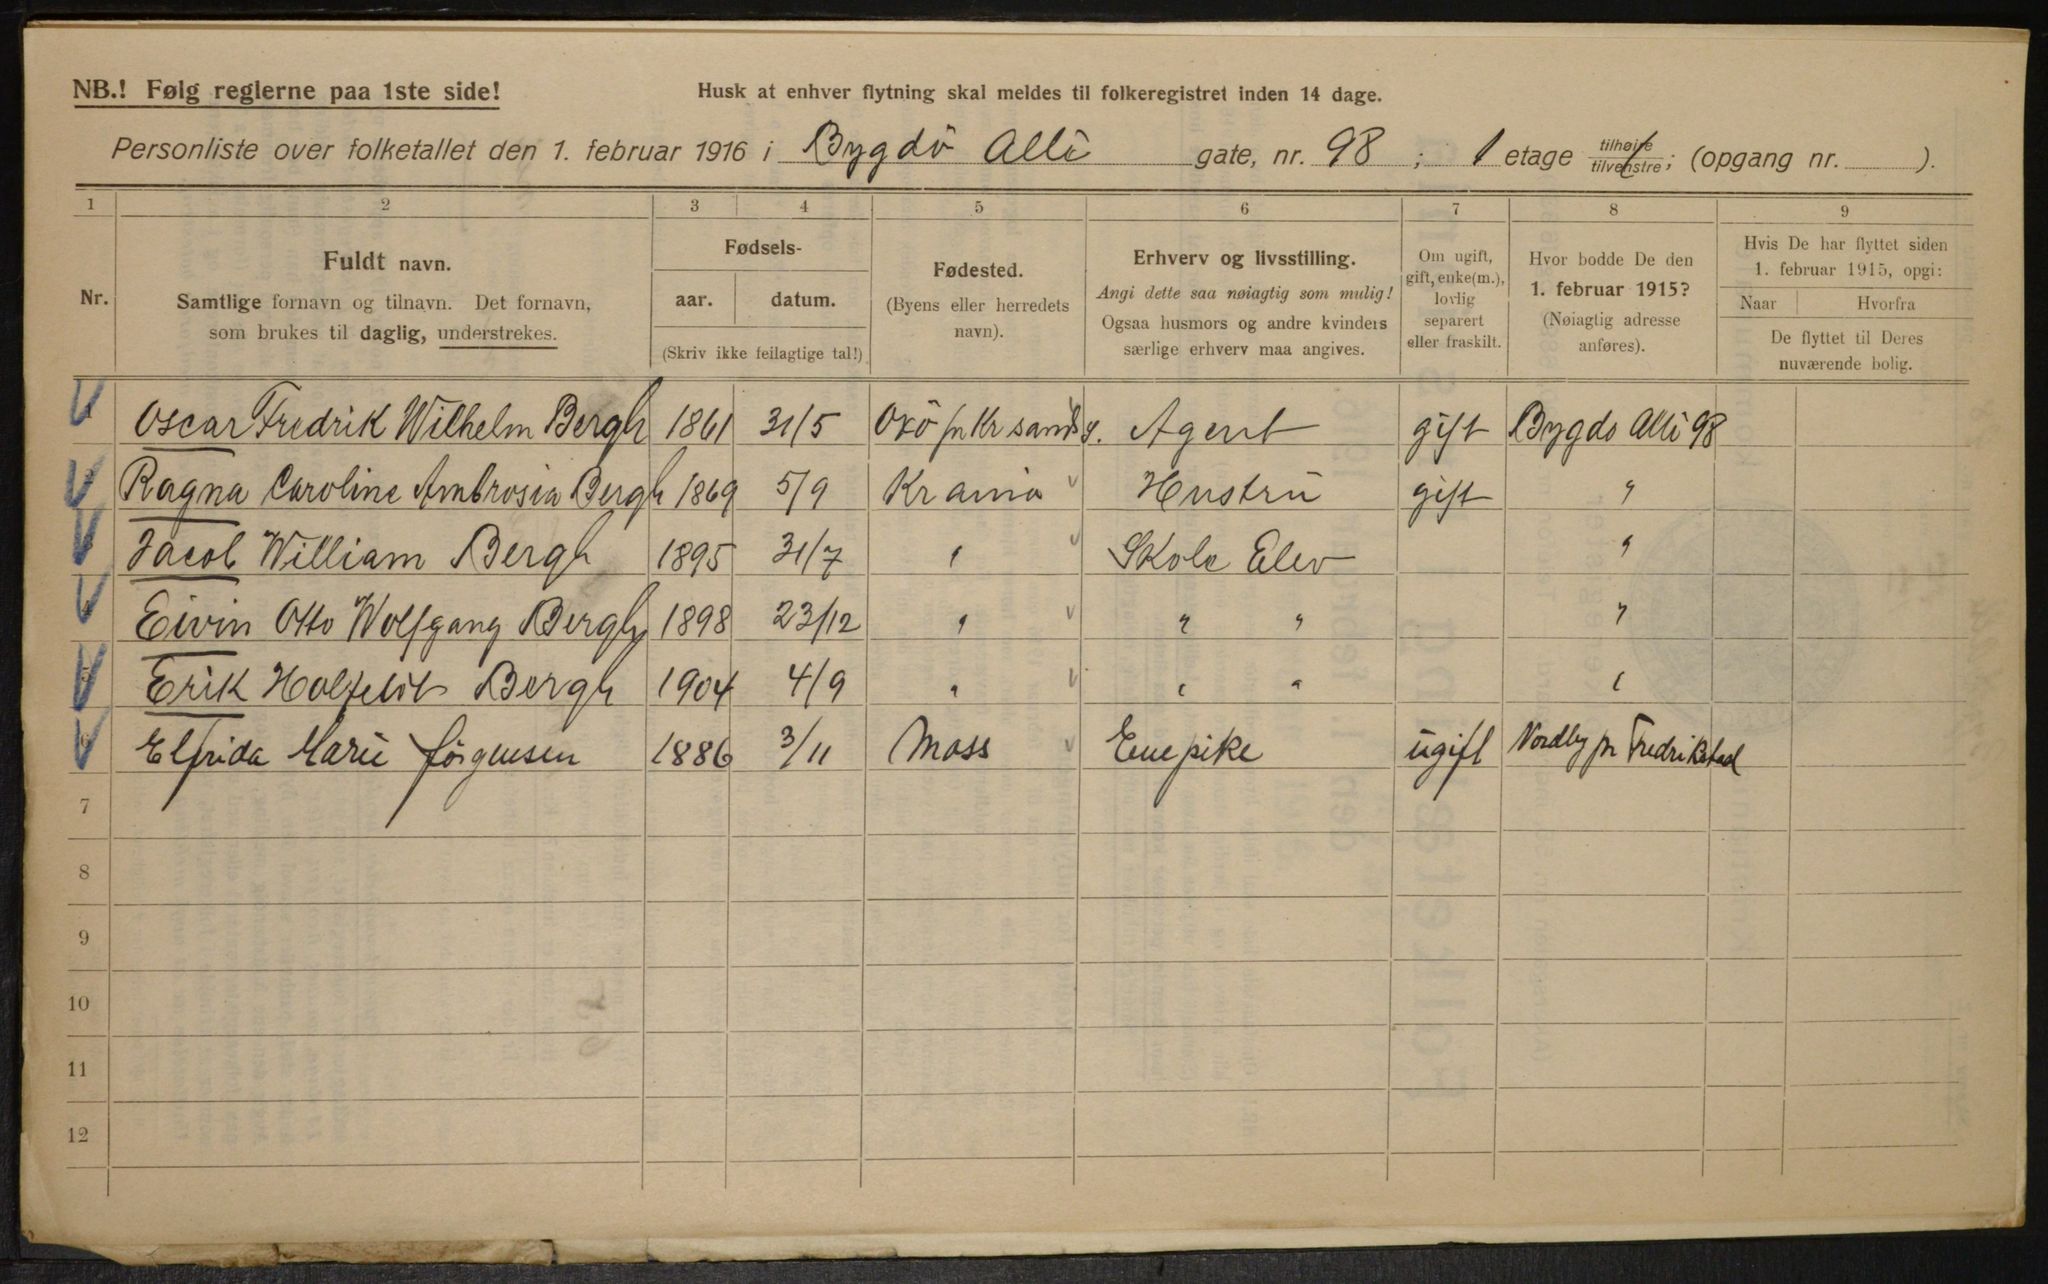 NB.! Følg reglerne paa 1ste side!
Husk at enhver flytning skal meldes til folkeregistret inden 14 dage.
Personliste over folketallet den 1. februar 1916 i Bygdö Alle gate, nr. 98 ; 1 etage tilhøire/tilvenstre; (opgang nr. ).
1 2 3 4 5 6 7 8 9
Nr.
Fuldt navn.
Samtlige fornavn og tilnavn. Det fornavn,
som brukes til daglig, understrekes.
Fødsels-
aar. datum.
(Skriv ikke feilagtige tal!)
Fødested.
(Byens eller herredets
navn).
Erhverv og livsstilling.
Angi dette saa nøiagtig som mulig!
Ogsaa husmors og andre kvinders
særlige erhverv maa angives.
Om ugift,
gift, enke(m.),
lovlig
separert
eller fraskilt.
Hvor bodde De den
1. februar 1915?
(Nøiagtig adresse
anføres).
Hvis De har flyttet siden
1. februar 1915, opgi:
Naar Hvorfra
De flyttet til Deres
nuværende bolig.
Oscar Fredrik Wilhelm Bergh 1861 31/5 Oxö pr Kr sands. Agent gift Bygdo Alle 98
Ragna Caroline Ambrosia Bergh 1869 5/9 Krania Hustru gift "
Jacob William Bergh 1895 31/7 " Skole Elev "
Eivin Otto Wolfgang Bergh 1898 23/12 " " " "
5 Erik Holfeldt Bergh 1904 4/9 " " " "
6 Elfrida Marie Jörgensen 1886 3/11 Moss Enepike ugift Nordby pr Fredrikstad
7
8
9
10
11
12